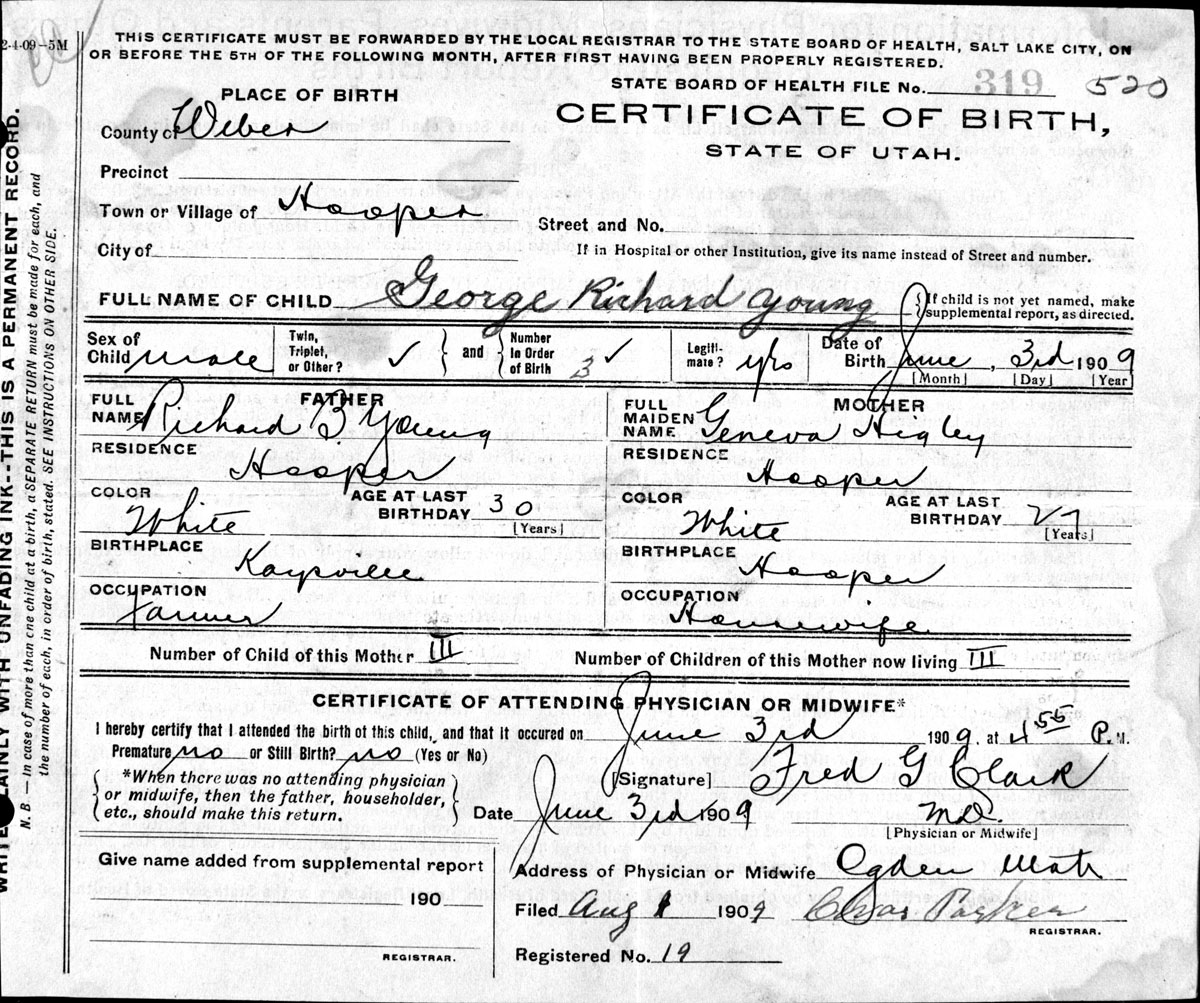 2-4-09-5M
THIS CERTIFICATE MUST BE FORWARDED BY THE LOCAL REGISTRAR TO THE STATE BOARD OF HEALTH, SALT LAKE CITY, ON
OR BEFORE THE 5TH OF THE FOLLOWING MONTH, AFTER FIRST HAVING BEEN PROPERLY REGISTERED.
STATE BOARD OF HEALTH FILE No. 319 520
PLACE OF BIRTH
CERTIFICATE OF BIRTH,
STATE OF UTAH.
County of Weber
Precinct
Town or Village of Hooper
Street and No.
City of
If in Hospital or other Institution, give its name instead of Street and number.
FULL NAME OF CHILD George Richard Young
{If child is not yet named, make
supplemental report, as directed.
Sex of Child male
Twin, Triplet, or Other? ✓
and
Number In Order of Birth 3 ✓
Legiti-mate? yes
Date of Birth June, 3rd 1909
[Month] [Day] [Year
FATHER
FULL NAME Richard B. Young
RESIDENCE Hooper
COLOR White
AGE AT LAST BIRTHDAY 30 [Years]
BIRTHPLACE Kaysville
OCCUPATION Farmer
MOTHER
FULL MAIDEN NAME Geneva Higley
RESIDENCE Hooper
COLOR White
AGE AT LAST BIRTHDAY 27 [Years]
BIRTHPLACE Hooper
OCCUPATION Housewife
Number of Child of this Mother III
Number of Children of this Mother now living III
CERTIFICATE OF ATTENDING PHYSICIAN OR MIDWIFE*
I hereby certify that I attended the birth of this child, and that it occured on June 3rd 1909, at 4 55 P.M.
Premature no or Still Birth? no (Yes or No)
*When there was no attending physician
or midwife, then the father, householder,
etc., should make this return.
[Signature] Fred G Clark
Date June 3rd 1909
M.D.
[Physician or Midwife]
Give name added from supplemental report
190
REGISTRAR.
Address of Physician or Midwife Ogden Utah
Filed Aug 1 1909 Parker
REGISTRAR.
Registered No. 19
LAINLY WITH UNFADING INK--THIS IS A PERMANENT RECORD.
N. B. — In case of more than one child at a birth, a SEPARATE RETURN must be made for each, and
the number of each, in order of birth, stated. SEE INSTRUCTIONS ON OTHER SIDE.